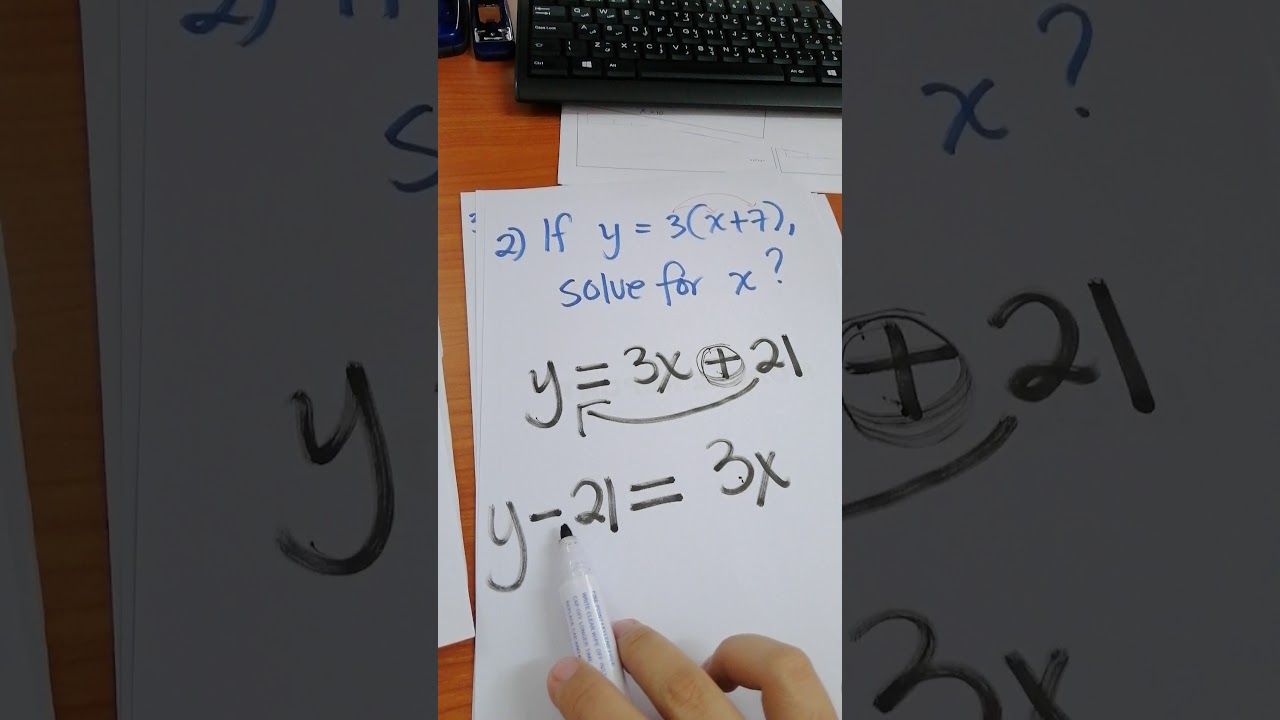 2) If y = 3(x+7),
solve for x?
y = 3x + 21
y - 21 = 3x